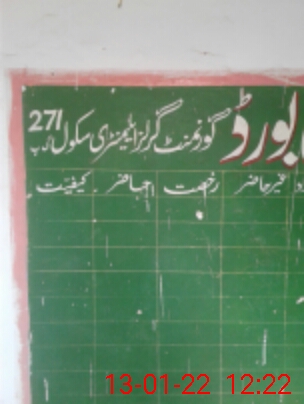 بورڈ گورنمنٹ گرلز ایلیمنٹری سکول 271
غیر حاضر رخصت کیفیت
13-01-22 12:22